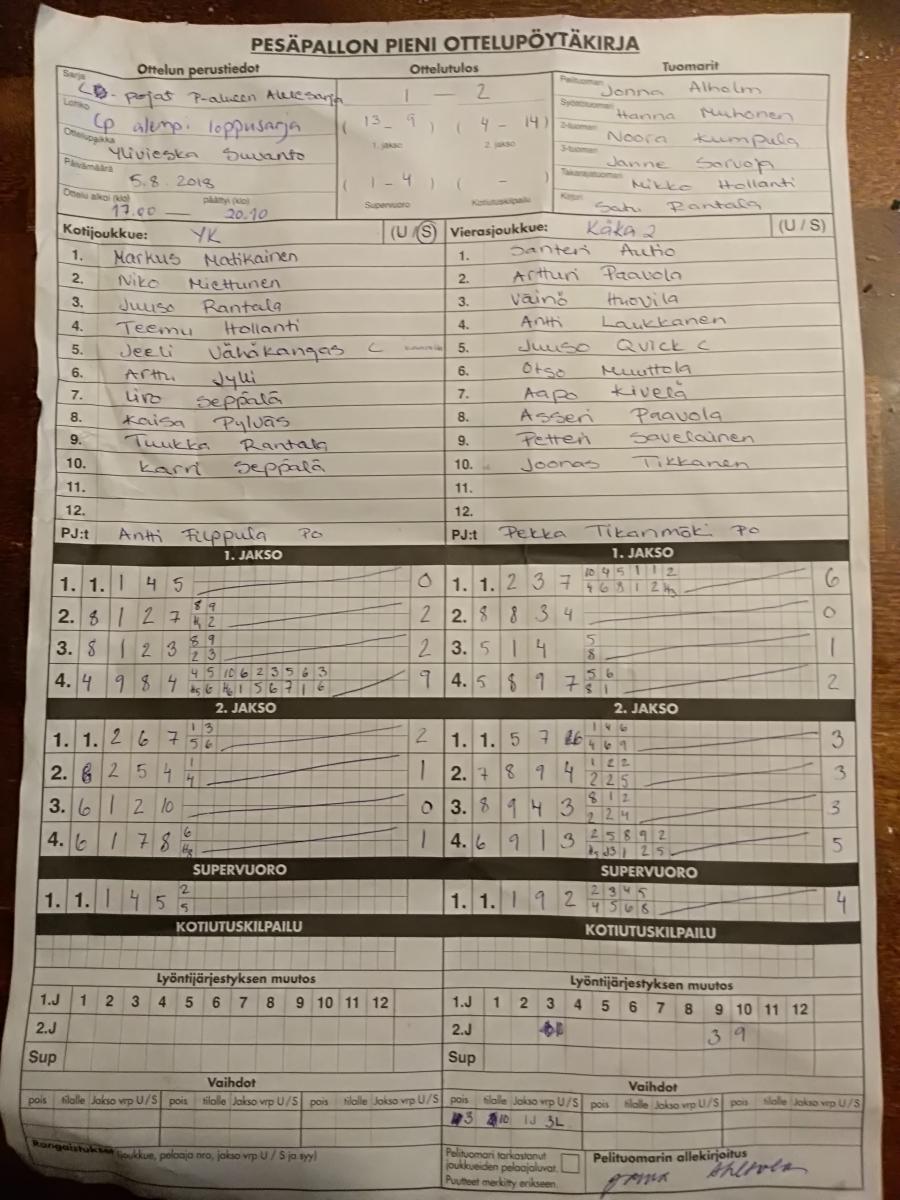 PESÄPALLON PIENI OTTELUPÖYTÄKIRJA
Ottelun perustiedot Ottelutulos Tuomarit
Sarja pojat P-alueen Aluesarja 1 — 2 Pelituomari Jonna Alholm
Lohko Cp alempi loppusarja (13 - 9) (4 - 14) Syöttötuomari Hanna Muhonen
Ottelupaikka Ylivieska Suvanto 1. jakso 2. jakso 2-tuomari Noora Kumpula
Päivämäärä 5.8.2018 (1 - 4) ( - ) 3-tuomari Janne Sarvoja
Ottelu alkoi (klo) päättyi (klo) Supervuoro Kotiutuskilpailu Takarajatuomari Mikko Hollanti
17.00 — 20.10 Kirjuri Satu Rantala
Kotijoukkue: YK (U / S) Vierasjoukkue: KäKa 2 (U / S)
1. Markus Matikainen 1. Santeri Autio
2. Niko Miettunen 2. Artturi Paavola
3. Juuso Rantala 3. Väinö Huovila
4. Teemu Hollanti 4. Antti Laukkanen
5. Jeeli Vähäkangas C 5. Juuso Quick C
6. Arttu Jylli 6. Otso Muuttola
7. Iiro Seppälä 7. Aapo Kivelä
8. Kaisa Pylväs 8. Asseri Paavola
9. Tuukka Rantala 9. Petteri Savelainen
10. Karri Seppälä 10. Joonas Tikkanen
11. 11.
12. 12.
PJ:t Antti Filppula PO PJ:t Pekka Tikanmäki PO
1. JAKSO 1. JAKSO
10 4 5 1 1 2
1. 1. 1 4 5 0 1. 1. 2 3 7 4 6 8 1 2 6
8 9
2. 8 1 2 7 2 2 2. 8 8 3 4 0
8 9 5
3. 8 1 2 3 2 3 2 3. 5 1 4 8 1
4 5 10 6 2 3 5 6 3 5 6
4. 4 9 8 4 6 1 5 6 7 1 6 9 4. 5 8 9 7 8 1 2
2. JAKSO 2. JAKSO
1 3 1 4 6
1. 1. 2 6 7 5 6 2 1. 1. 5 7 4 6 9 3
1 1 2 2
2. 8 2 5 4 4 1 2. 7 8 9 4 2 2 5 3
8 1 2
3. 6 1 2 10 0 3. 8 9 4 3 2 2 4 3
6 2 5 8 9 2
4. 6 1 7 8 1 4. 6 9 1 3 1 2 5 5
SUPERVUORO SUPERVUORO
2 2 3 4 5
1. 1. 1 4 5 5 1. 1. 1 9 2 4 5 6 8 4
KOTIUTUSKILPAILU KOTIUTUSKILPAILU
Lyöntijärjestyksen muutos Lyöntijärjestyksen muutos
1.J 1 2 3 4 5 6 7 8 9 10 11 12 1.J 1 2 3 4 5 6 7 8 9 10 11 12
2.J 2.J 3 9
Sup Sup
Vaihdot Vaihdot
pois tilalle Jakso vrp U/S pois tilalle Jakso vrp U/S pois tilalle Jakso vrp U/S pois tilalle Jakso vrp U/S pois tilalle Jakso vrp U/S pois tilalle Jakso vrp U/S
3 10 1J 3L
Rangaistukset (joukkue, pelaaja nro, jakso vrp U / S ja syy) Pelituomari tarkastanut Pelituomarin allekirjoitus
joukkueiden pelaajaluvat.
Puutteet merkitty erikseen.